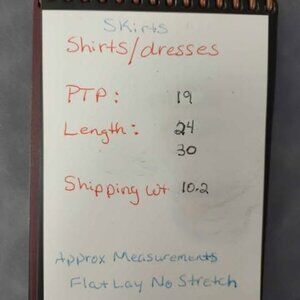 Skirts
Shirts/dresses
PTP: 19
Length: 24
30
Shipping wt 10.2
Approx Measurements
Flat Lay No Stretch